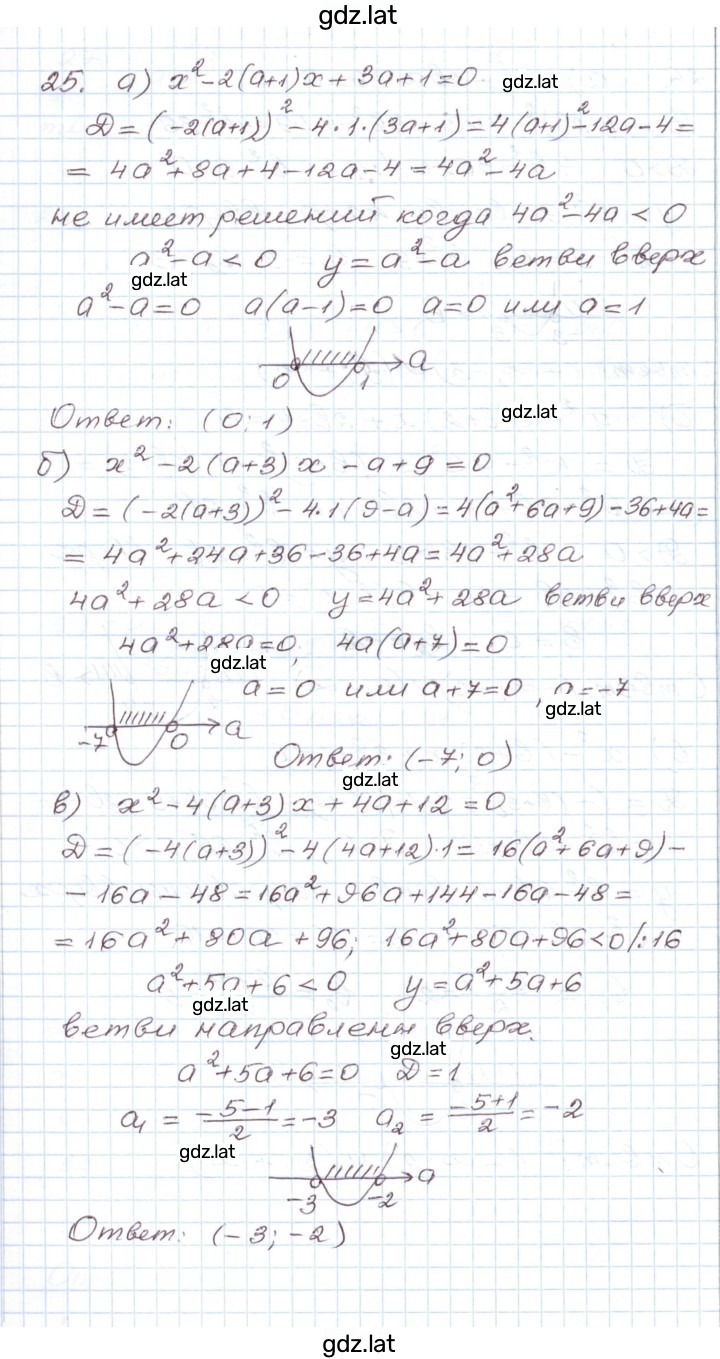 gdz.lat
25. а) x²-2(a+1)x+3a+1=0 gdz.lat
D=(-2(a+1))²-4·1·(3a+1)=4(a+1)²-12a-4=
= 4a²+8a+4-12a-4=4a²-4a
не имеет решений когда 4a²-4a<0
a²-a<0 y=a²-a ветви вверх
gdz.lat
a²-a=0 a(a-1)=0 a=0 или a=1
0 1 a
Ответ: (0;1) gdz.lat
б) x²-2(a+3)x-a+9=0
D=(-2(a+3))²-4·1(9-a)=4(a²+6a+9)-36+4a=
= 4a²+24a+36-36+4a=4a²+28a
4a²+28a<0 y=4a²+28a ветви вверх
4a²+28a=0, 4a(a+7)=0
gdz.lat
a=0 или a+7=0, a=-7
gdz.lat
-7 0 a
Ответ: (-7; 0)
gdz.lat
в) x²-4(a+3)x+4a+12=0
D=(-4(a+3))²-4(4a+12)·1= 16(a²+6a+9)-
-16a-48=16a²+96a+144-16a-48=
=16a²+80a+96; 16a²+80a+96<0/:16
a²+5a+6<0 y=a²+5a+6
gdz.lat
ветви направлены вверх.
gdz.lat
a²+5a+6=0 D=1
a₁ = (-5-1)/2 = -3 a₂ = (-5+1)/2 = -2
gdz.lat
-3 -2 a
Ответ: (-3; -2)
gdz.lat